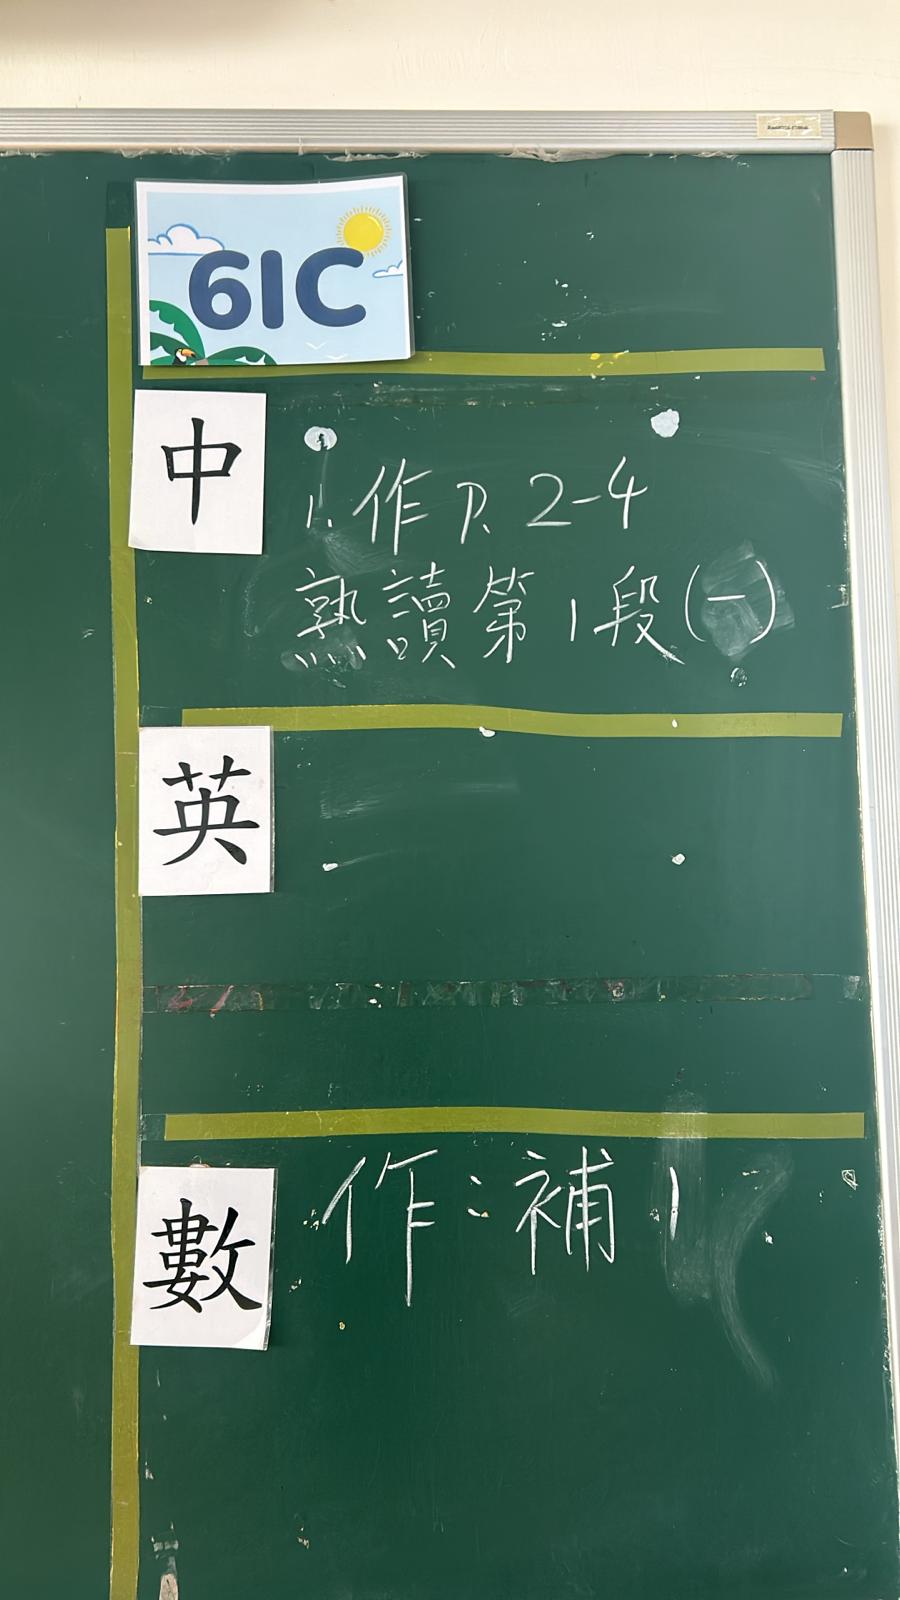 61C
中
1. 作 P. 2-4
熟讀第1段(一)
英
數
作:補1